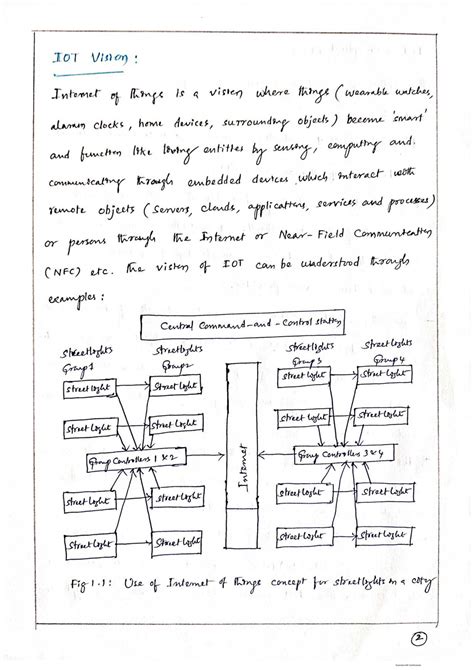 IOT Vision :
Internet of Things is a vision where things ( wearable watches,
alaram clocks, home devices, surrounding objects) become 'smart'
and function like living entities by sensing, computing and
communicating through embedded devices which interact with
remote objects (servers, clouds, applications, services and processes)
or persons through the Internet or Near-Field Communication
(NFC) etc. The vision of IOT can be understood through
examples :
Central Command-and-Control station
Streetlights Group 1
Streetlights Group 2
Streetlights Group 3
Streetlights Group 4
Street light
Street light
Street light
Street light
Street light
Street light
Street light
Street light
Group Controllers 1 & 2
Internet
Group Controllers 3 & 4
Street light
Street light
Street light
Street light
Street light
Street light
Street light
Street light
Fig 1.1: Use of Internet of Things concept for streetlights in a city
2